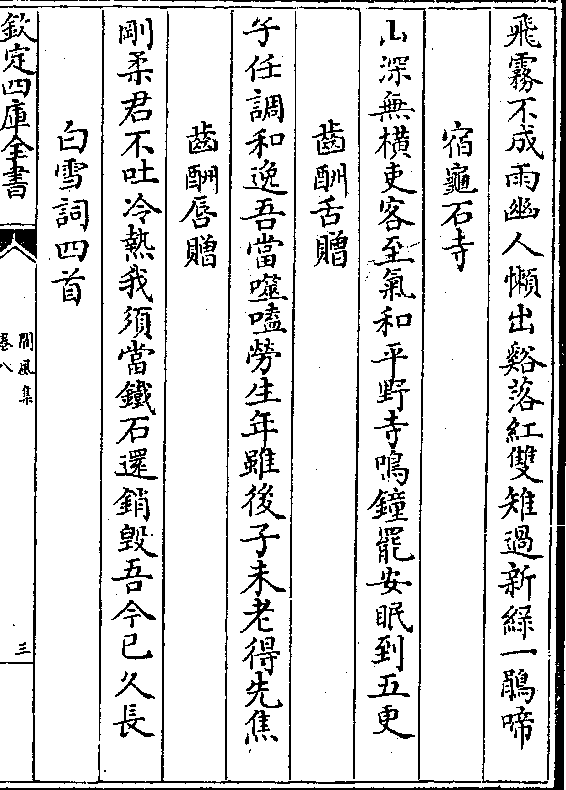 飛霧不成雨幽人懶出谿落紅雙雉過新緑一鵑啼
宿龜石寺
山深無橫吏客至氣和平野寺鳴鐘罷安眠到五更
齒酬舌贈
子任調和逸吾當噬嗑勞生年雖後子未老得先焦
齒酬唇贈
剛柔君不吐冷熱我須當鐵石還銷毀吾今已久長
白雪詞四首
欽定四庫全書
閬風集
卷八
三